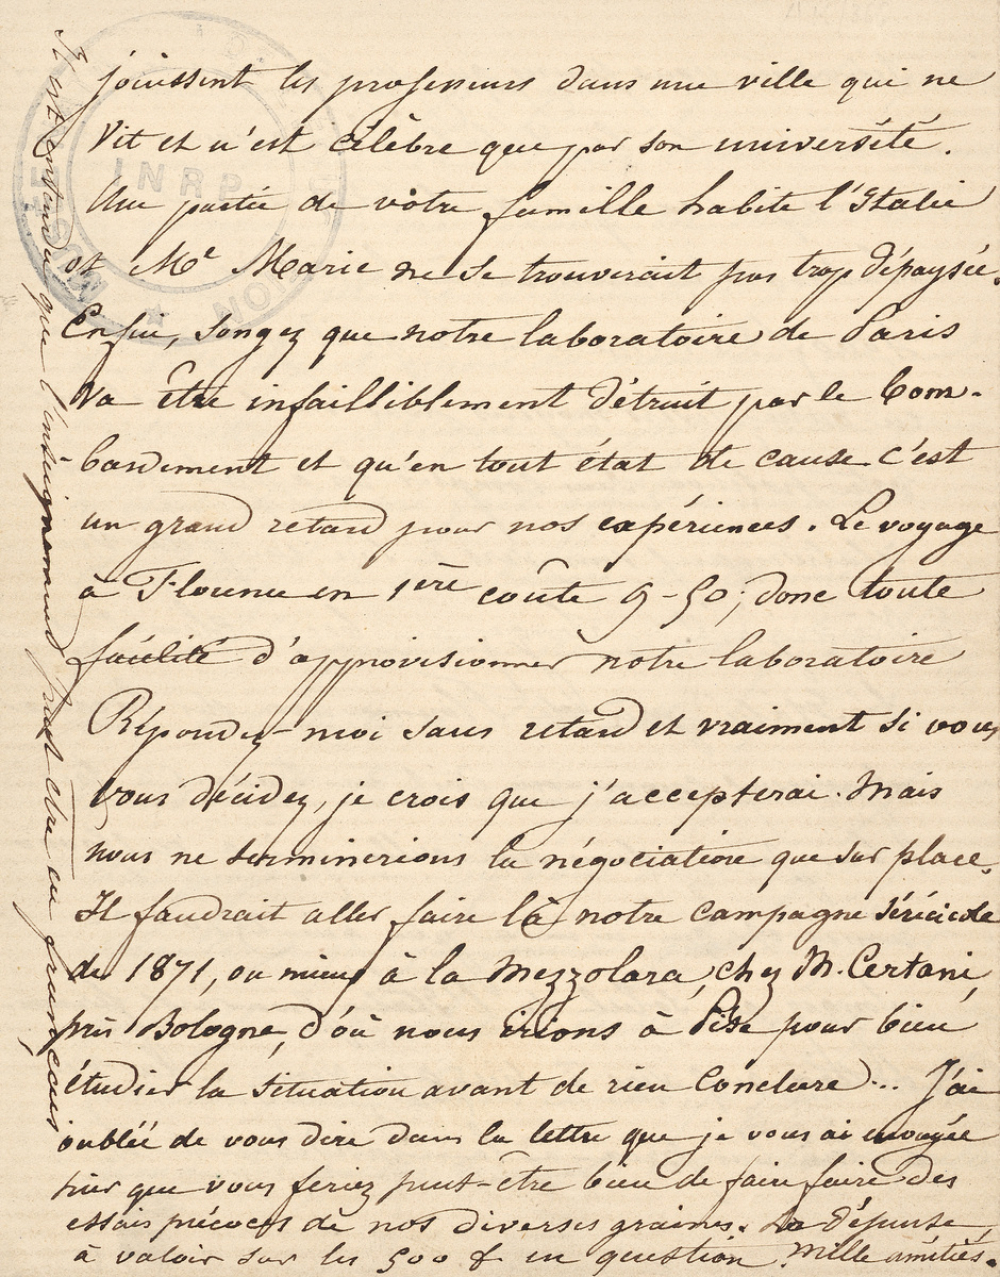 jouissent les professeurs dans une ville qui ne
vit et n'est célèbre que par son université.
Une partie de vôtre famille habite l'Italie
et Me Marie ne se trouverait pas trop dépaysée.
Enfin, songez que notre laboratoire de Paris
va être infailliblement détruit par le bom-
bardement et qu'en tout état de cause c'est
un grand retard pour nos expériences. Le voyage
à Florence en 1ère coûte 9-50; donc toute
facilité d'approvisionner notre laboratoire
Répondez-moi sans retard et vraiment si vous
vous décidez, je crois que j'accepterai. Mais
nous ne terminerions la négociation que sur place.
Il faudrait aller faire là notre campagne séricicole
de 1871, ou mieux à la Mezzolara, chez M. Certani,
près Bologne, d'où nous irions à Pise pour bien
étudier la situation avant de rien conclure... J'ai
oublié de vous dire dans la lettre que je vous ai envoyée
hier que vous feriez peut-être bien de faire faire des
essais précoces de nos diverses graines. La dépense
à valoir sur les 500 f en question. Mille amitiés.
Il est entendu que l'enseignement peut être en français
MUSÉE
INRP